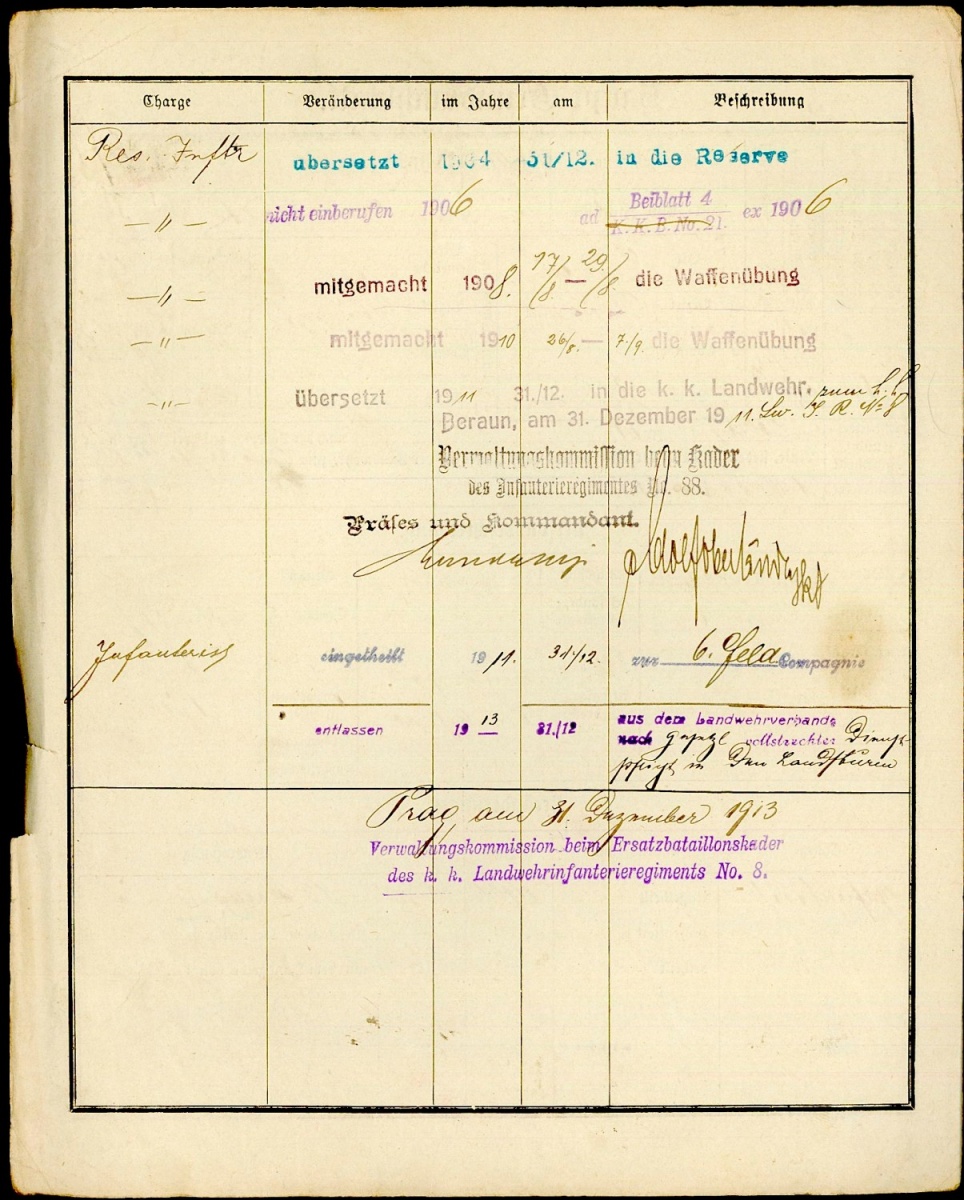 Charge Veränderung im Jahre am Beschreibung
Res. Inftr übersetzt 1904 31/12. in die Reserve
—„— nicht einberufen 1906 ad Beiblatt 4
K. K. B. No. 21. ex 1906
—„— mitgemacht 1908. 17/8. — 29/8. die Waffenübung
—„— mitgemacht 1910 26/8. — 7./9. die Waffenübung
—„— übersetzt 1911 31./12. in die k. k. Landwehr. zum k. k.
Beraun, am 31. Dezember 1911. Lw. I. R. No 8
Verwaltungskommission beim Kader
des Infanterieregimentes No. 88.
Präses und Kommandant.
Infanterist eingetheilt 1911. 31./12. zur 6. Feld Compagnie
entlassen 1913 31./12 aus dem Landwehrverbande
nach gesetzl vollstreckter Dienst-
pflicht in den Landsturm
Prag am 31. Dezember 1913
Verwaltungskommission beim Ersatzbataillonskader
des k. k. Landwehrinfanterieregiments No. 8.